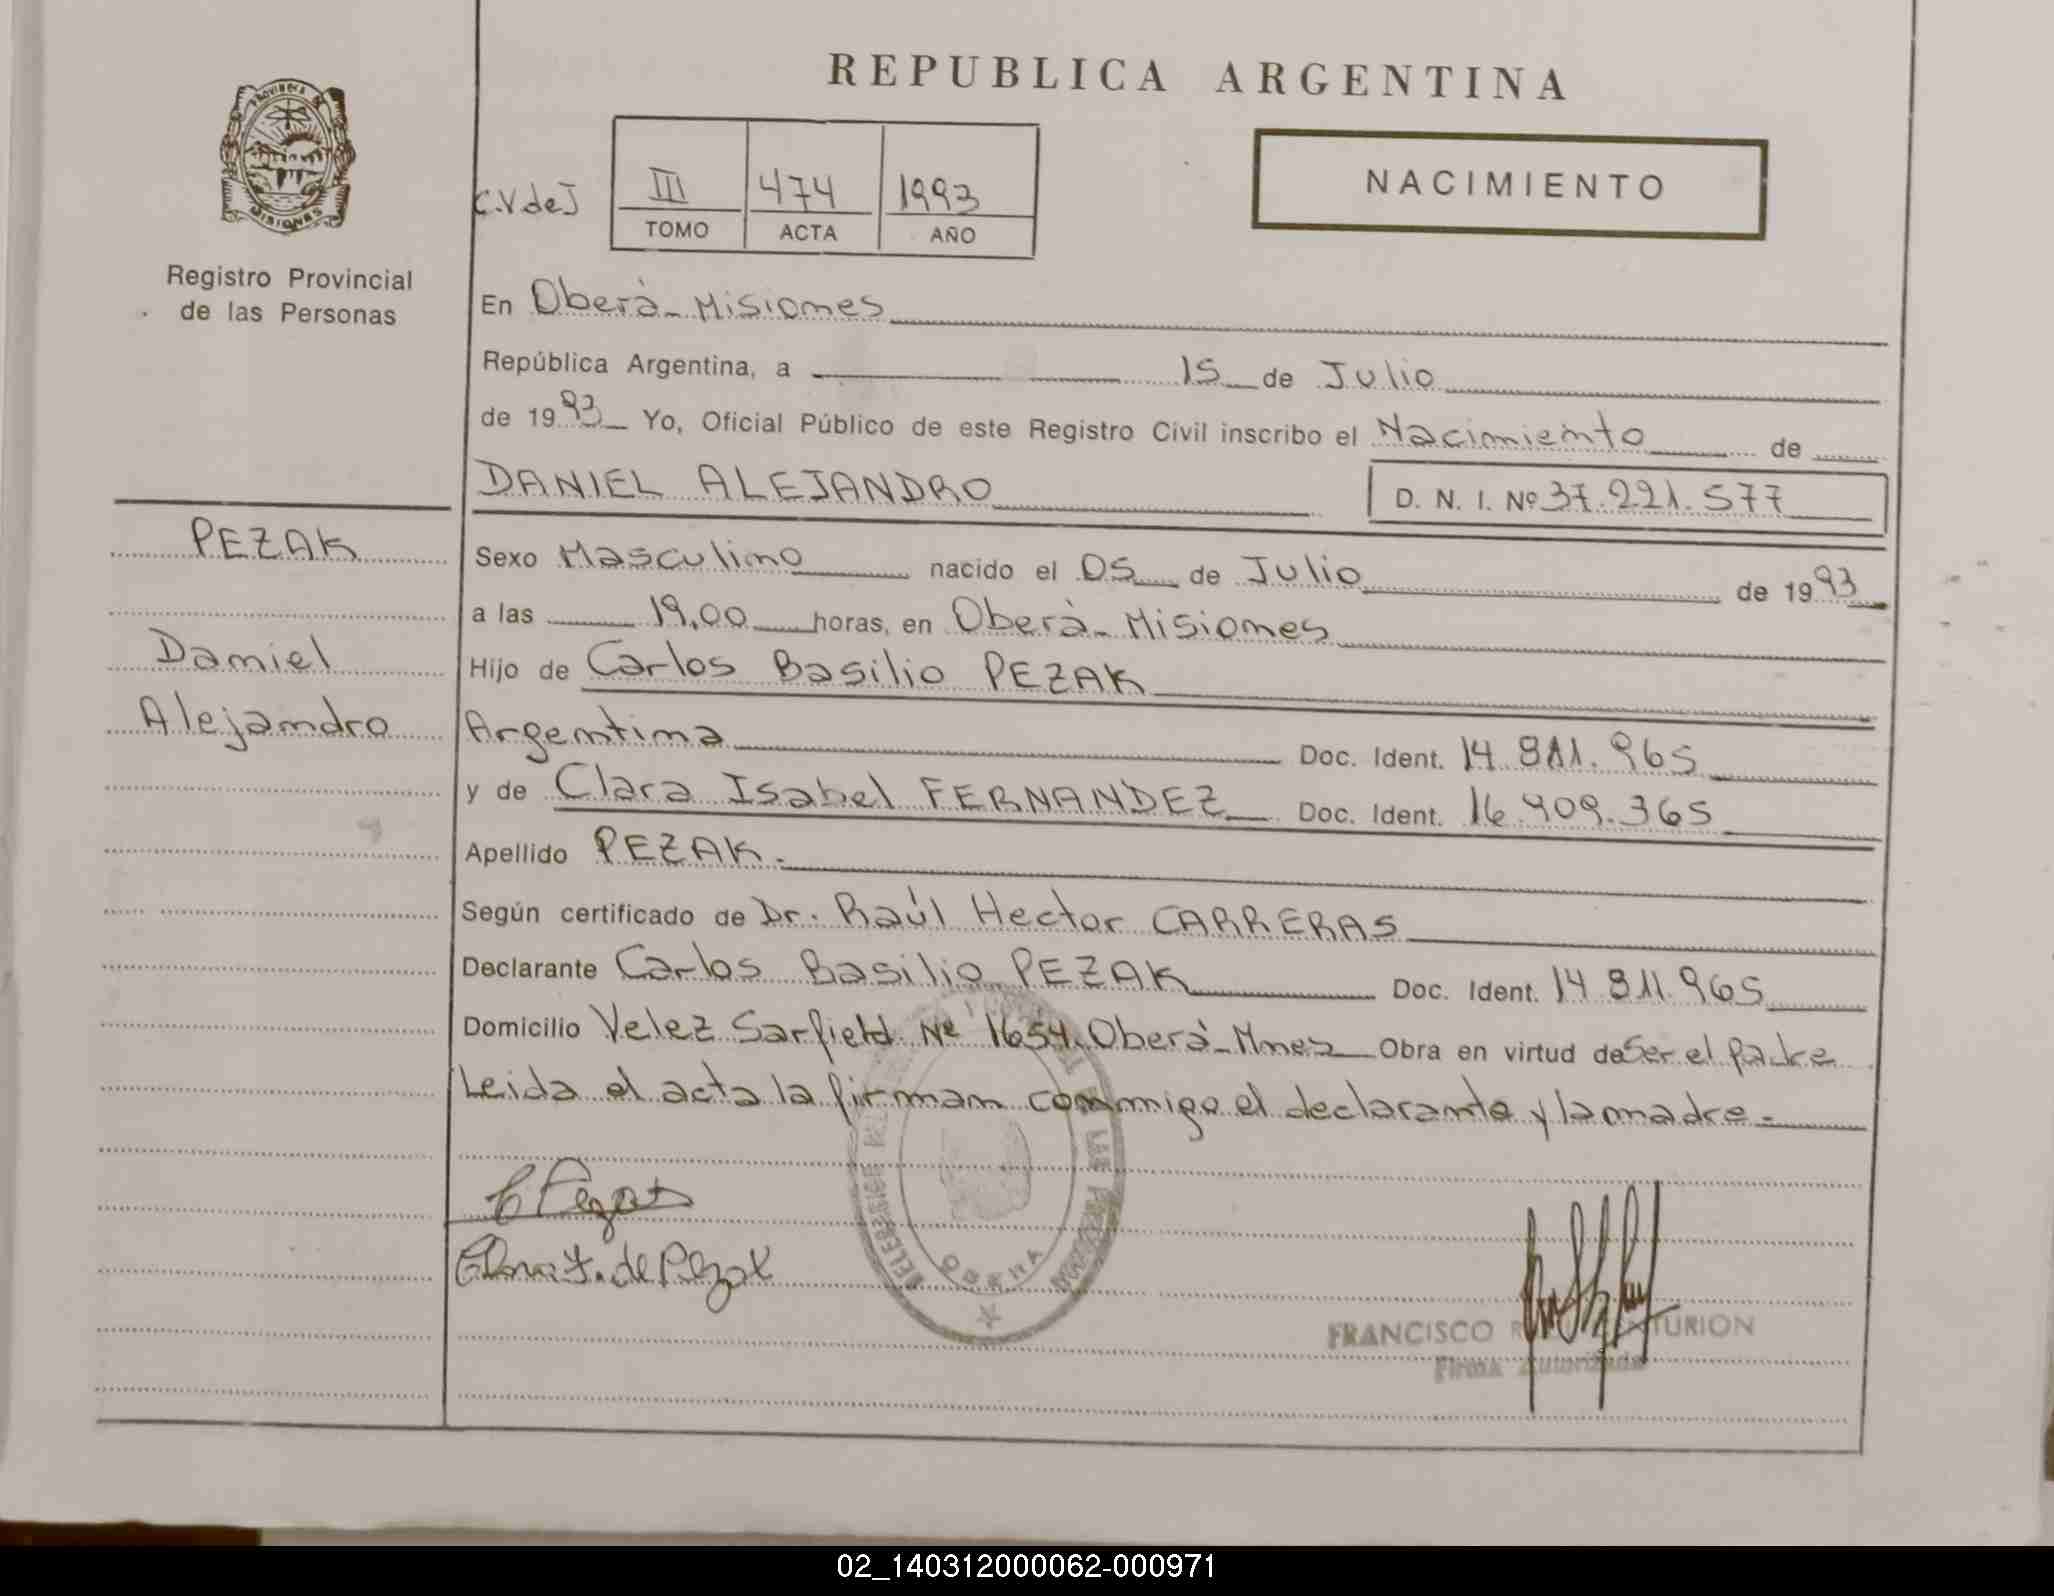 REPUBLICA ARGENTINA
PROVINCIA DE
MISIONES
Registro Provincial
de las Personas
C.V de J
III 474 1993
TOMO ACTA AÑO
NACIMIENTO
En Oberà - Misiones
República Argentina, a 15 de Julio
de 1993 Yo, Oficial Público de este Registro Civil inscribo el Nacimiento de
DANIEL ALEJANDRO D. N. I. Nº 37.221.577
PEZAK
Daniel
Alejandro
Sexo Masculino nacido el 05 de Julio de 1993
a las 19,00 horas, en Oberà - Misiones
Hijo de Carlos Basilio PEZAK
Argentina Doc. Ident. 14.811.965
y de Clara Isabel FERNANDEZ Doc. Ident. 16.909.365
Apellido PEZAK.
Según certificado de Dr. Raúl Hector CARRERAS
Declarante Carlos Basilio PEZAK Doc. Ident. 14.811.965
Domicilio Velez Sarfield Nº 1654. Oberà - Mnes Obra en virtud de Ser el padre
Leida el acta la firman conmigo el declarante y la madre.-
de Pezak
OBERA
FRANCISCO CENTURION
Firma Autorizada
02_140312000062-000971